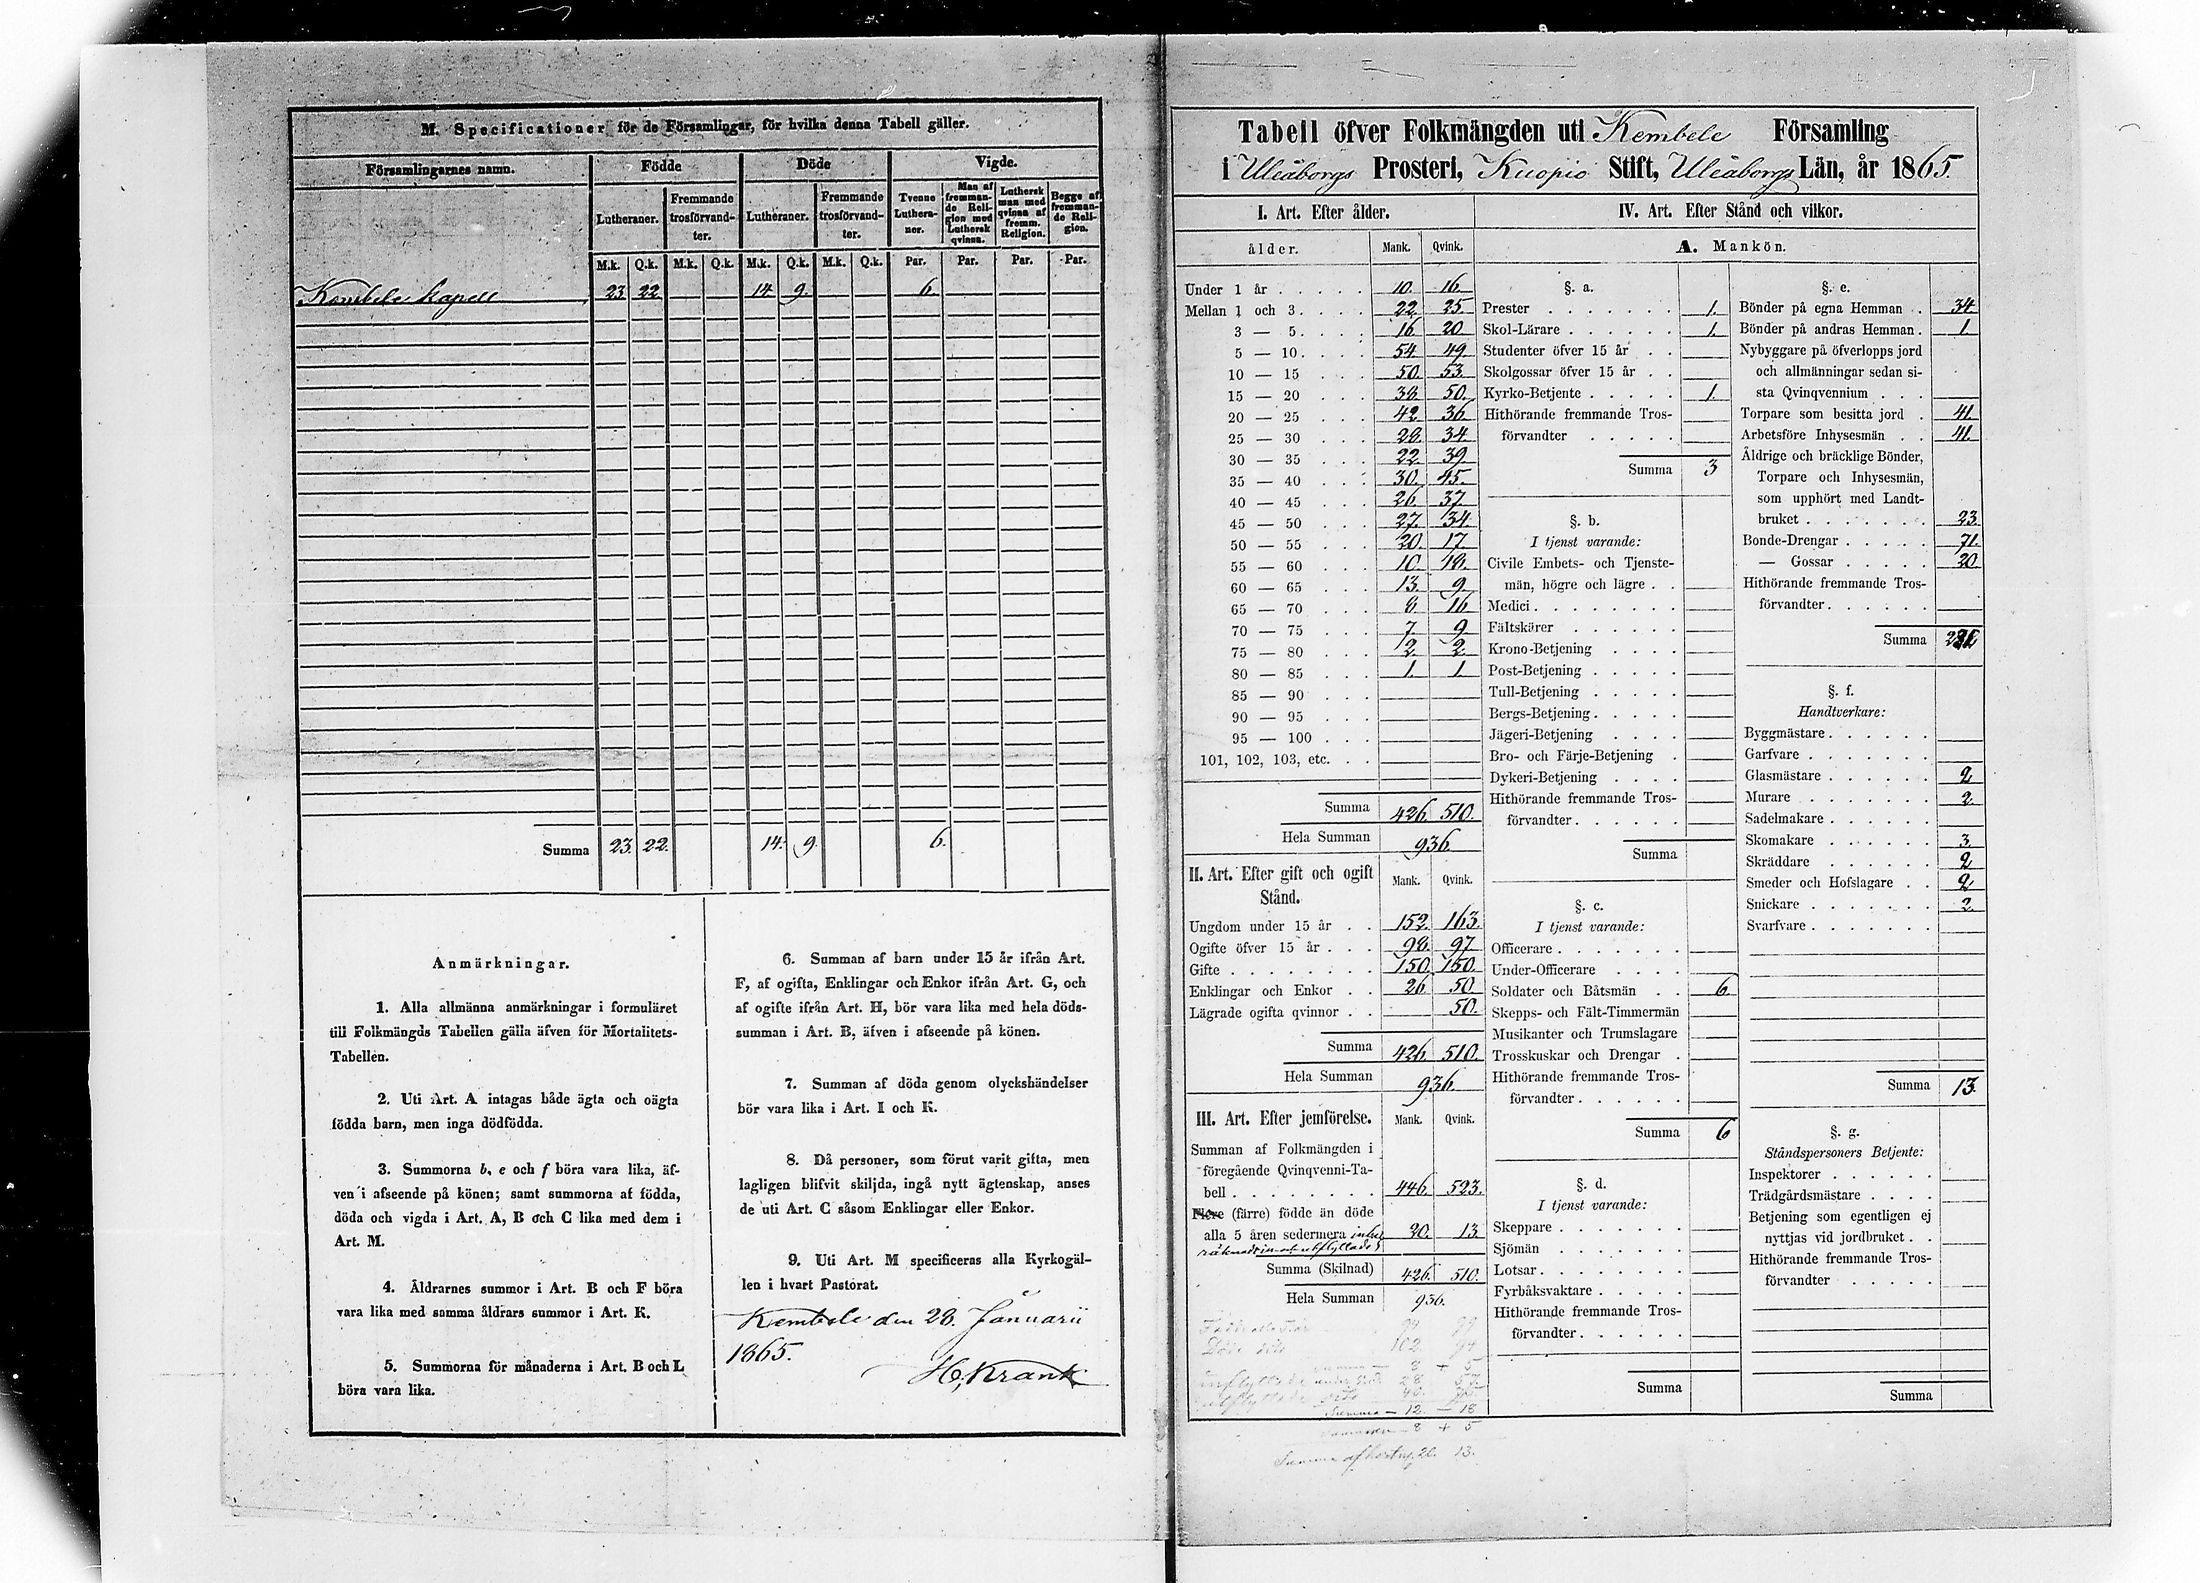 M. Specificationer för de Församlingar, för hvilka denna Tabell gäller.
Församlingarnes namn. Födde Döde Vigde.
Lutheraner. Fremmande trosförvandter. Lutheraner. Fremmande trosförvandter. Tvenne Lutheraner. Man af fremmande Religion med Luthersk qvinna. Luthersk man med qvinna af fremm. Religion. Begge af fremmande Religion.
M.k. Q.k. M.k. Q.k. M.k. Q.k. M.k. Q.k. Par. Par. Par. Par.
Kembele kapell 23 22 14 9. 6.
Summa 23. 22. 14. 9. 6.
Anmärkningar.
1. Alla allmänna anmärkningar i formuläret
till Folkmängds Tabellen gälla äfven för Mortalitets-
Tabellen.
2. Uti Art. A intagas både ägta och oägta
födda barn, men inga dödfödda.
3. Summorna b, e och f böra vara lika, äf-
ven i afseende på könen; samt summorna af födda,
döda och vigda i Art. A, B och C lika med dem i
Art. M.
4. Åldrarnes summor i Art. B och F böra
vara lika med samma åldrars summor i Art. K.
5. Summorna för månaderna i Art. B och L
böra vara lika.
6. Summan af barn under 15 år ifrån Art.
F, af ogifta, Enklingar och Enkor ifrån Art. G, och
af ogifte ifrån Art. H, bör vara lika med hela döds-
summan i Art. B, äfven i afseende på könen.
7. Summan af döda genom olyckshändelser
bör vara lika i Art. I och K.
8. Då personer, som förut varit gifta, men
lagligen blifvit skiljda, ingå nytt ägtenskap, anses
de uti Art. C såsom Enklingar eller Enkor.
9. Uti Art. M specificeras alla Kyrkogäl-
len i hvart Pastorat.
Kembele den 28. Januarii
1865.
H. Krank
Tabell öfver Folkmängden uti Kembele Församling
i Uleåborgs Prosteri, Kuopio Stift, Uleåborgs Län, år 1865.
I. Art. Efter ålder.
ålder. Mank. Qvink.
Under 1 år 10. 16.
Mellan 1 och 3. 22. 25.
3 — 5. 16. 20.
5 — 10. 54. 49.
10 — 15 50. 53.
15 — 20 38. 50.
20 — 25 42. 36.
25 — 30 28. 34.
30 — 35 22. 39.
35 — 40 30. 45.
40 — 45 26. 37.
45 — 50 27. 34.
50 — 55 20. 17.
55 — 60 10. 18.
60 — 65 13. 9.
65 — 70 8. 16.
70 — 75 7. 9.
75 — 80 2. 2.
80 — 85 1. 1.
85 — 90
90 — 95
95 — 100
101, 102, 103, etc.
Summa 426. 510.
Hela Summan 936.
II. Art. Efter gift och ogift Stånd. Mank. Qvink.
Ungdom under 15 år 152. 163.
Ogifte öfver 15 år 98. 97.
Gifte 150. 150.
Enklingar och Enkor 26. 50.
Lägrade ogifta qvinnor 50.
Summa 426. 510.
Hela Summan 936.
III. Art. Efter jemförelse. Mank. Qvink.
Summan af Folkmängden i
föregående Qvinqvenni-Ta-
bell 446. 523.
Flere (färre) födde än döde
alla 5 åren sedermera inbe 20. 13
räknade in- och utflyttade
Summa (Skilnad) 426. 510.
Hela Summan 936.
Döde 102. 94
8 + 5
Summa — 12. — 18
8 + 5
20. 13.
IV. Art. Efter Stånd och vilkor.
A. Mankön.
§. a.
Prester 1.
Skol-Lärare 1.
Studenter öfver 15 år
Skolgossar öfver 15 år
Kyrko-Betjente 1.
Hithörande fremmande Tros-
förvandter
Summa 3
§. b.
I tjenst varande:
Civile Embets- och Tjenste-
män, högre och lägre
Medici
Fältskärer
Krono-Betjening
Post-Betjening
Tull-Betjening
Bergs-Betjening
Jägeri-Betjening
Bro- och Färje-Betjening
Dykeri-Betjening
Hithörande fremmande Tros-
förvandter
Summa
§. c.
I tjenst varande:
Officerare
Under-Officerare
Soldater och Båtsmän 6.
Skepps- och Fält-Timmermän
Musikanter och Trumslagare
Trosskuskar och Drengar
Hithörande fremmande Tros-
förvandter
Summa 6
§. d.
I tjenst varande:
Skeppare
Sjömän
Lotsar
Fyrbåksvaktare
Hithörande fremmande Tros-
förvandter
Summa
§. e.
Bönder på egna Hemman 34
Bönder på andras Hemman 1.
Nybyggare på öfverlopps jord
och allmänningar sedan si-
sta Qvinqvennium
Torpare som besitta jord 41.
Arbetsföre Inhysesmän 41.
Åldrige och bräcklige Bönder,
Torpare och Inhysesmän,
som upphört med Landt-
bruket 23
Bonde-Drengar 71.
— Gossar 20
Hithörande fremmande Tros-
förvandter
Summa
§. f.
Handtverkare:
Byggmästare
Garfvare
Glasmästare 2
Murare 2.
Sadelmakare
Skomakare 3.
Skräddare 2
Smeder och Hofslagare 2
Snickare 2.
Svarfvare
Summa 13.
§. g.
Ståndspersoners Betjente:
Inspektorer
Trädgårdsmästare
Betjening som egentligen ej
nyttjas vid jordbruket
Hithörande fremmande Tros-
förvandter
Summa